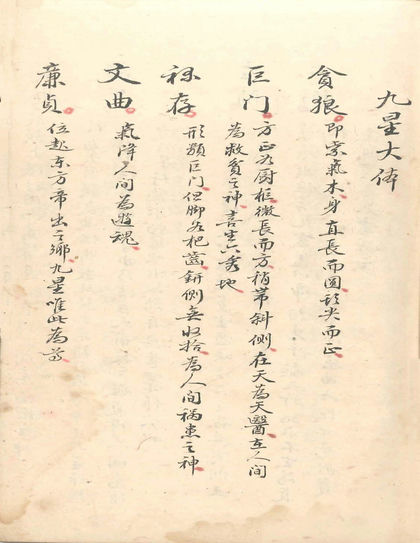 九星大体
貪狼 即紫氣木身直長而圓頭尖而正
巨门 方正如厨柜微長而方稍带斜側在天為天醫在人間
為救貧之神喜生六秀地
禄存 形類巨门但脚如把齒側無收拾為人間禍患之神
文曲 氣降人間為遊魂
廉貞 位起东方帝出之鄉九星唯此為尊